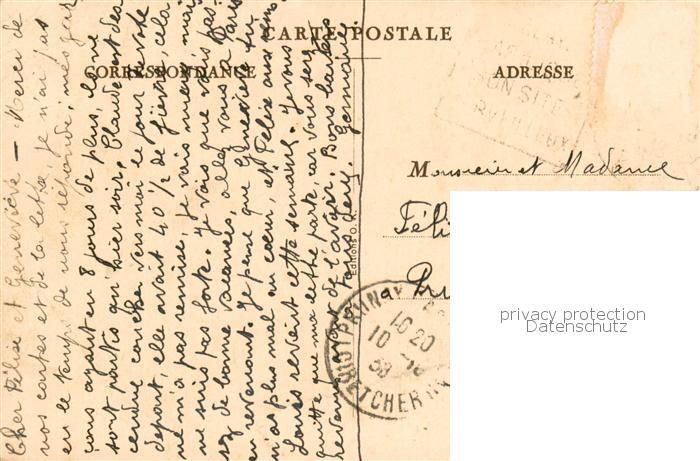 CARTE POSTALE
CORRESPONDANCE
ADRESSE
Cher Félise et Geneviève – Merci de
vos cartes et de la lettre je n'ai pas
eu le temps de vous répondre, mes gar
çons ayant eu 8 jours de plus, ils ne
sont partis qu'hier soir. Claude est des
cendue coucher vers moi le jour de votre
depart, elle avait 40 1/2 de fièvre cela
ne m'a pas remise, je vais mieux mais
ne suis pas forte. Je vois que vous pas
sez de bonne vacances, allez vous a Paris
en revenant. Je pense que Geneviève tu
n'as plus mal au cœur, et Félise aux
Louis revient cette semaine. Je vous
quitte que ma lettre parte, car vous serz
revenus avant de l'avoir. Bons baisers
Germaine
Editions O. K.
UN SITE
Monsieur et Madame
Féli
a Pru
PRUNAY
10 20
10
38
LOIR ET CHER
privacy protection
Datenschutz